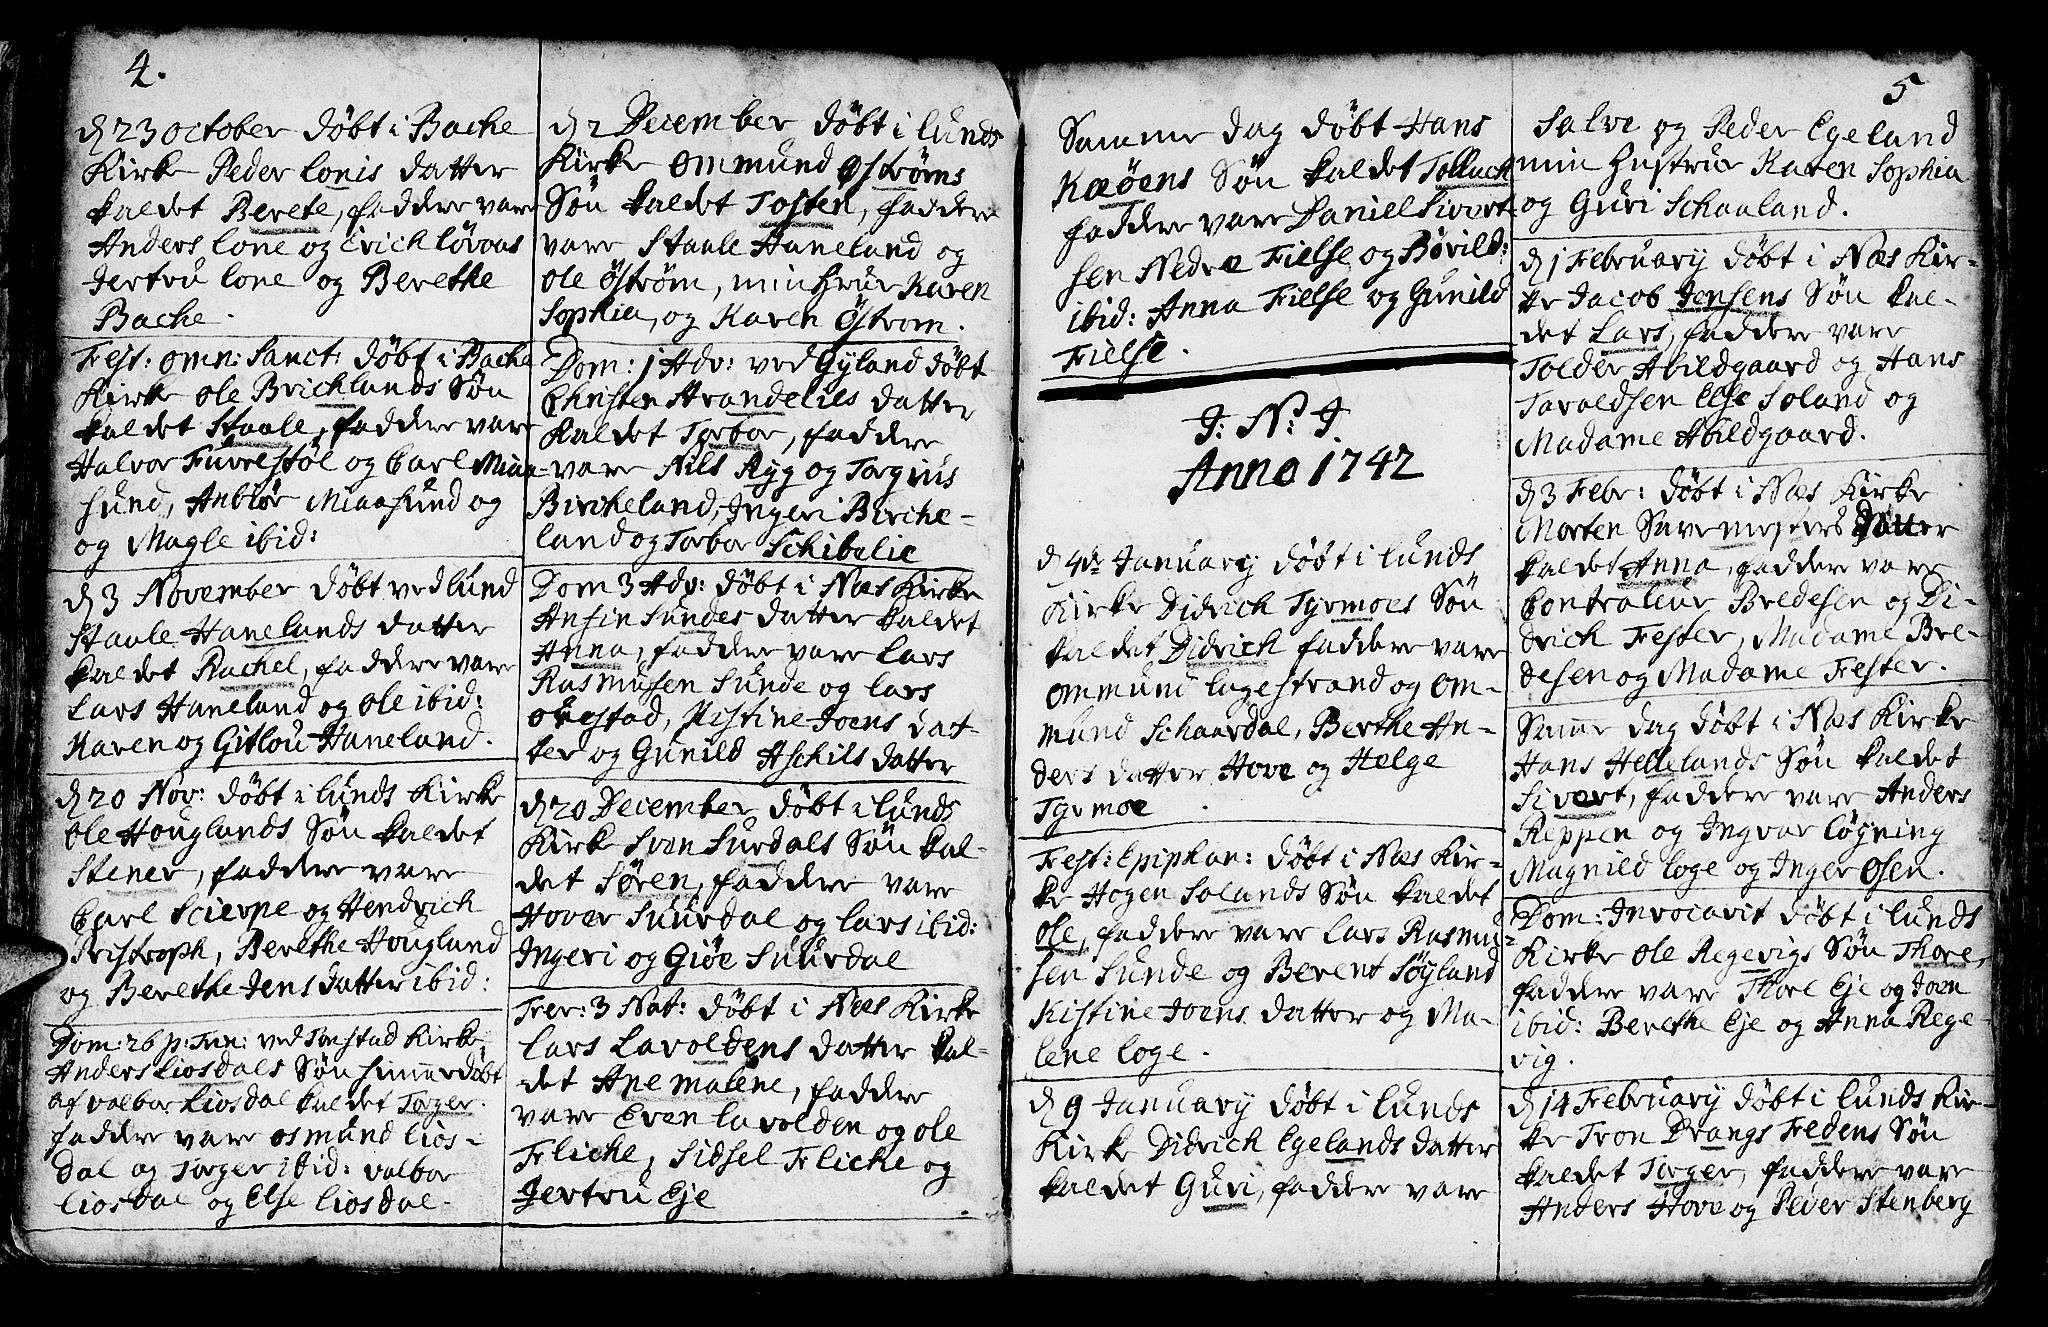 4.
d 23 october døbt i Bache
Kirke Peder Lonis datter
kaldet Berete, faddere vare
Anders Lone og Erich Løvaas
Jertru Lone og Berethe
Bache.
Fest: omn: Sanct: døbt i Bache
Kirke Ole Brichlands Søn
kaldet Staale, faddere vare
Halvor Fuvrestøl og Carl Miaa-
sund, Anbiør Miaasund og
og Magle ibid:
d 3 November døbt ved Lund
Staale Hanelands datter
kaldet Rachel, faddere vare
Lars Haneland og Ole ibid:
Karen og Gitlou Haneland.
d 20 Nov: døbt i Lunds Kirke
Ole Houglands Søn kaldet
Stener, faddere vare
Carl Scierpe og Hendrich
Pristroph, Berethe Hougland
og Berethe Jens datter ibid:
Dom: 26 p: Trin: ved Tonstad Kirke
Anders Liosdals Søn himmerdøbt
af valbor Liosdal kaldet Torger.
faddere vare Osmund Lios-
dal og Torger ibid: valbor
Liosdal og Else Liosdal.
d 2 December døbt i Lunds
Kirke Ommund Østrøms
Søn kaldet Tosten, faddere
vare Staale Haneland og
Ole Østrøm, min Hrue Karen
Sophia, og Karen Østrom.
Dom: 1 Adv: ved Gyland døbt
Christen Arandelies datter
Kaldet Torbor, faddere
vare Nils Ryg og Torgius
Bircheland, Ingeri Birche-
land og Torbor Schibelie
Dom 3 Adv: døbt i Næs Kirke
Ansin Sundes datter kaldet
Anna, faddere vare Lars
Rasmusen Sunde og Lars
Ovestad, Kistine Joens dat-
ter og Gunild Aschils datter
d 20 December døbt i Lunds
Kirke Sven Surdals Søn kal-
det Søren, faddere vare
Hover Suurdal og Lars ibid:
Ingeri og Giøe Suurdal
Fer: 3 Nat: døbt i Næs Kirke
Lars Lavoldens datter kal-
det Ane malene, faddere
vare Even Lavolden og Ole
Fliche, Sidsel Fliche og
Jertru Eje
5
Samme dag døbt Hans
Kæøens Søn kaldet Tollach
faddere vare Daniel Sivert-
sen Nedre Fielse og Børild:
ibid: Anna Fielse og Gunild
Fielse.
J: N: J.
Anno 1742
d 4de January døbt i Lunds
Kirke Didrich Tyrmoes Søn
kaldet Didrich faddere vare
Ommund Lagestrand og Om-
mund Schaardal, Berthe An-
ders datter Hove og Helge
Tyrmoe.
Fest: Epiphan: døbt i Næs Kir-
ke Hogen Solands Søn kaldet
Ole, faddere vare Lars Rasmu-
sen Sunde og Berent Søyland
Kistine Joens datter og Ma-
lene Loge.
d 9 January døbt i Lunds
Kirke Didrich Egelands datter
kaldet Guri, faddere vare
Salve og Peder Egeland
min Hustrue Karen Sophia
og Guri Schaaland.
d 1 February døbt i Næs Kir-
ke Jacob Jensens Søn kal-
det Lars, faddere vare
Tolder Abildgaard og Hans
Taraldsen Else Soland og
Madame Abildgaard.
d 3 Febr: døbt i Næs Kirke
Morten Savemesters datter
kaldet Anna, faddere vare
Contraleur Bredesen og Di-
drich Fester, Madame Bre-
desen og Madame Fester.
Samme dag døbt i Næs Kirke
Hans Hellelands Søn kaldet
Sivert, faddere vare Anders
Reppen og Ingvar Løgning
Magnild Loge og Inger Osen.
Dom: Invocavit døbt i Lunds
Kirke Ole Regevigs Søn Thore,
faddere vare Thore Eje og Joen
ibid: Berethe Eje og Anna Rege-
vig.
d 14 February døbt i Lunds Kir-
ke Tron Drangs Fedens Søn
kaldet Torger, faddere vare
Anders Hove og Peder Stenberg